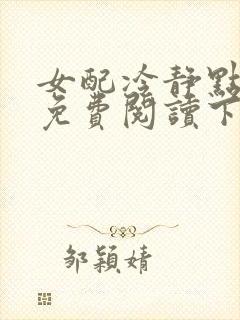 女配冷靜點
免費閱讀下
鄒穎婧